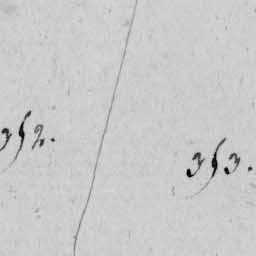 352.
353.